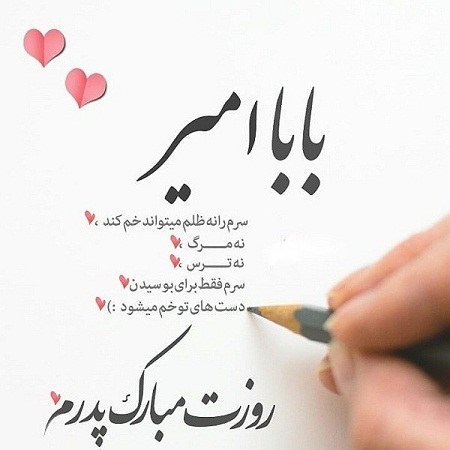 بابا امیر
سرم را نه ظلم میتواند خم کند ،
نه مرگ ،
نه ترس ،
سرم فقط برای بوسیدن
دست های تو خم میشود :)
روزت مبارک پدرم